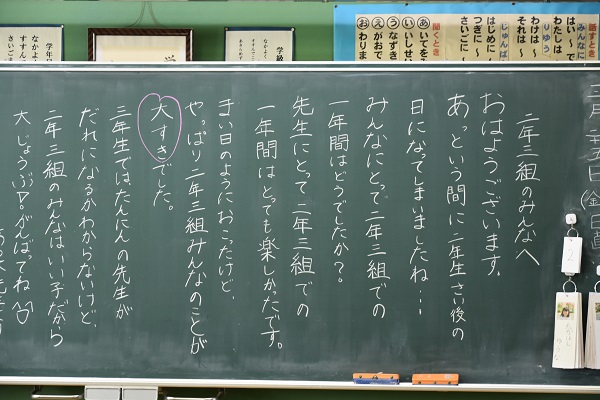 話すとき
みんなに
はい～で
わたしは
りゆう
わけは～
それは～
じゅんばん
はじめに～
つぎに～
さいごに～
聞くとき
あいてを
いいしせい
うなずき
えがおで
おわりま
学級
なかよく
学年
なかよく
すすんで
さいご
三月二十五日(金)日直
二年三組のみんなへ
おはようございます。
あっという間に二年生さい後の
日になってしまいましたね…
みんなにとって二年三組での
一年間はどうでしたか?。
先生にとって二年三組での
一年間はとっても楽しかったです。
まい日のようにおこったけど、
やっぱり二年三組みんなのことが
大すきでした。
三年生では、たんにんの先生が
だれになるかわからないけど、
二年三組のみんなはいい子だから
大じょうぶ!がんばってね